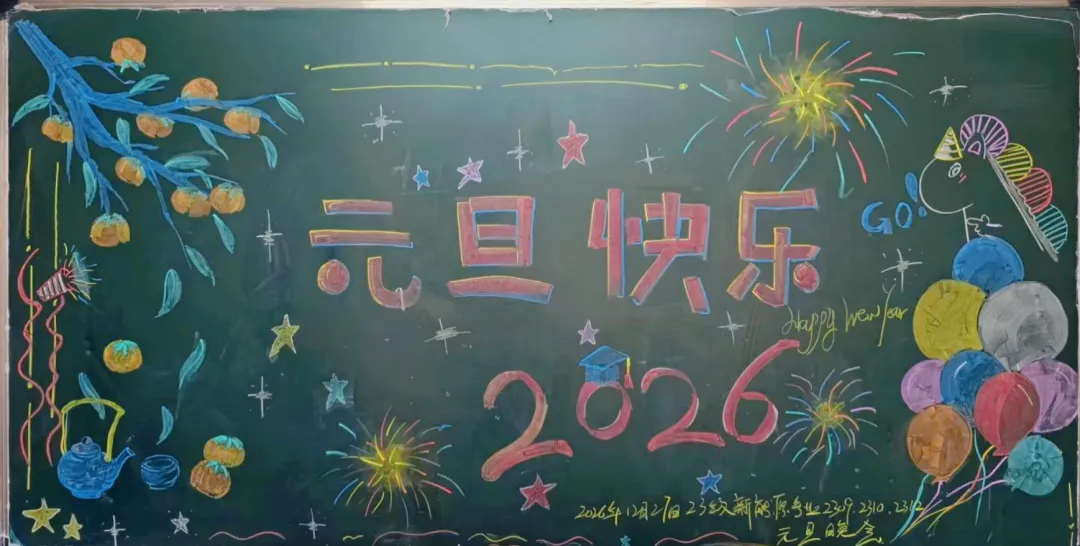 元旦快乐
GO!
Happy New Year
2026
2026年12月27日 23级新能源专业2309.2310.2312
元旦晚会